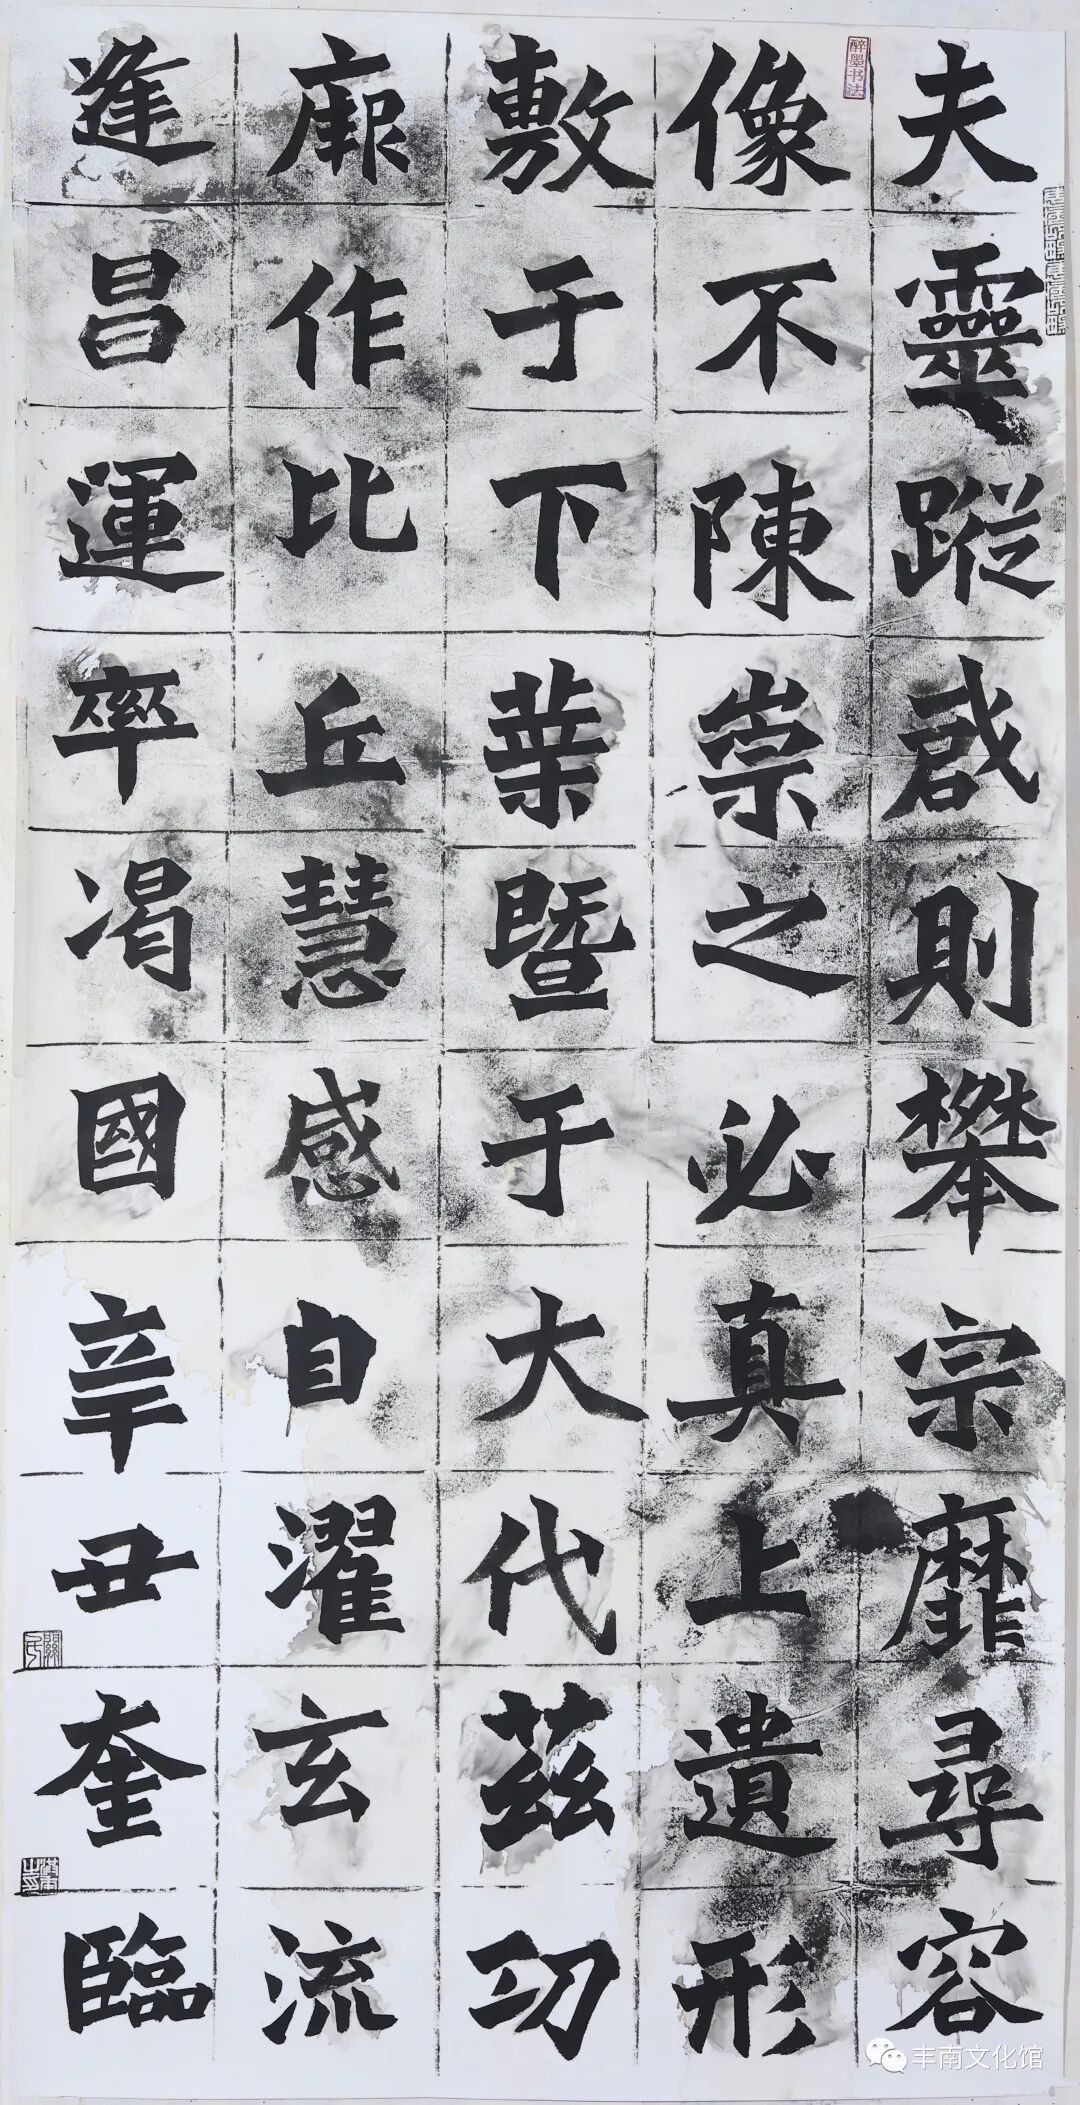 夫靈蹤啟則攀宗靡尋容
像不陳崇之必真上遺形
敷于下葉暨于大代茲功
厥作比丘慧感自濯玄流
逢昌運率渴國辛丑奎臨
醉墨书法
丰南文化馆